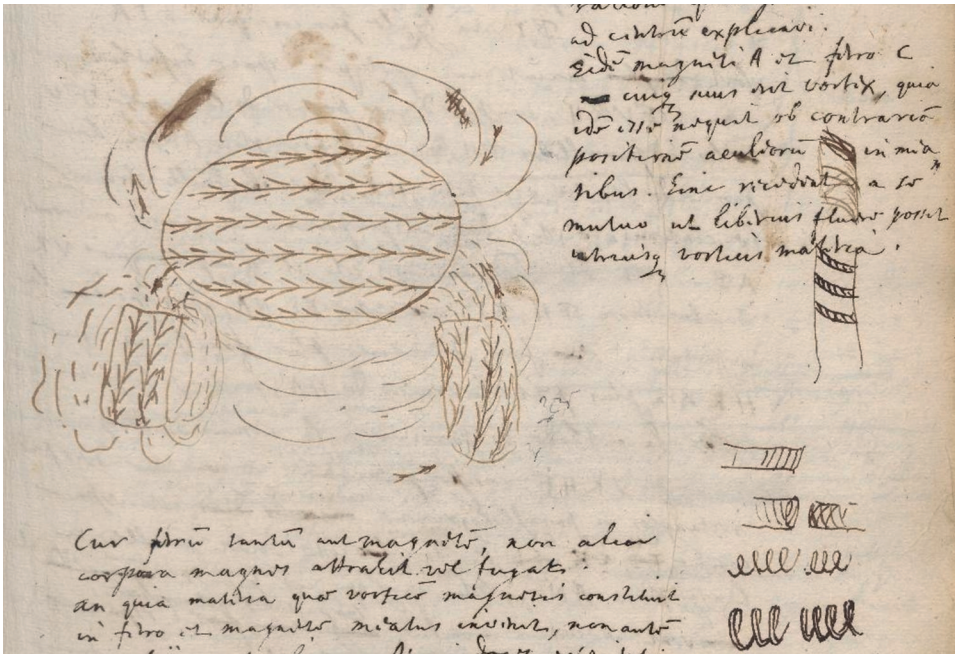 ad cintriũ explicari.
Eidẽ magneti A et ferro C
cuiq suus erit vortex, quia
idẽ essẽ nequit ob contrariã
positionẽ aculiorũ in mia
tibus. Hinc recedent a se
mutuo ut liberius fluere possit
utriusq vorticis materia.
Cur ferrũ tantũ aut magnetẽ, non alia
corpora magnes attrahit vel fugat.
an quia materia quae vorticẽ magnetis constituit
in ferro et magnete meatus invenit, non autẽ